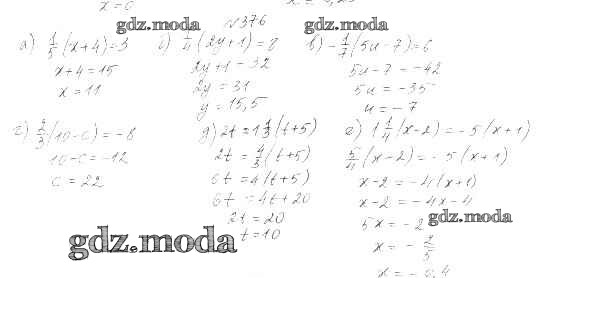 x = 0
gdz.moda
№376
gdz.moda
а) 1/5 (x+4) = 3
x+4 = 15
x = 11
б) 1/4 (2y+1) = 8
2y+1 = 32
2y = 31
y = 15,5
в) - 1/7 (5u - 7) = 6
5u - 7 = -42
5u = -35
u = -7
г) 2/3 (10 - c) = -8
10 - c = -12
c = 22
д) 2t = 1 1/3 (t+5)
2t = 4/3 (t+5)
6t = 4(t+5)
6t = 4t + 20
2t = 20
t = 10
е) 1 1/4 (x-2) = -5(x+1)
5/4 (x-2) = -5(x+1)
x-2 = -4(x+1)
x-2 = -4x-4
5x = -2
x = - 2/5
x = -0,4
gdz.moda
gdz.moda